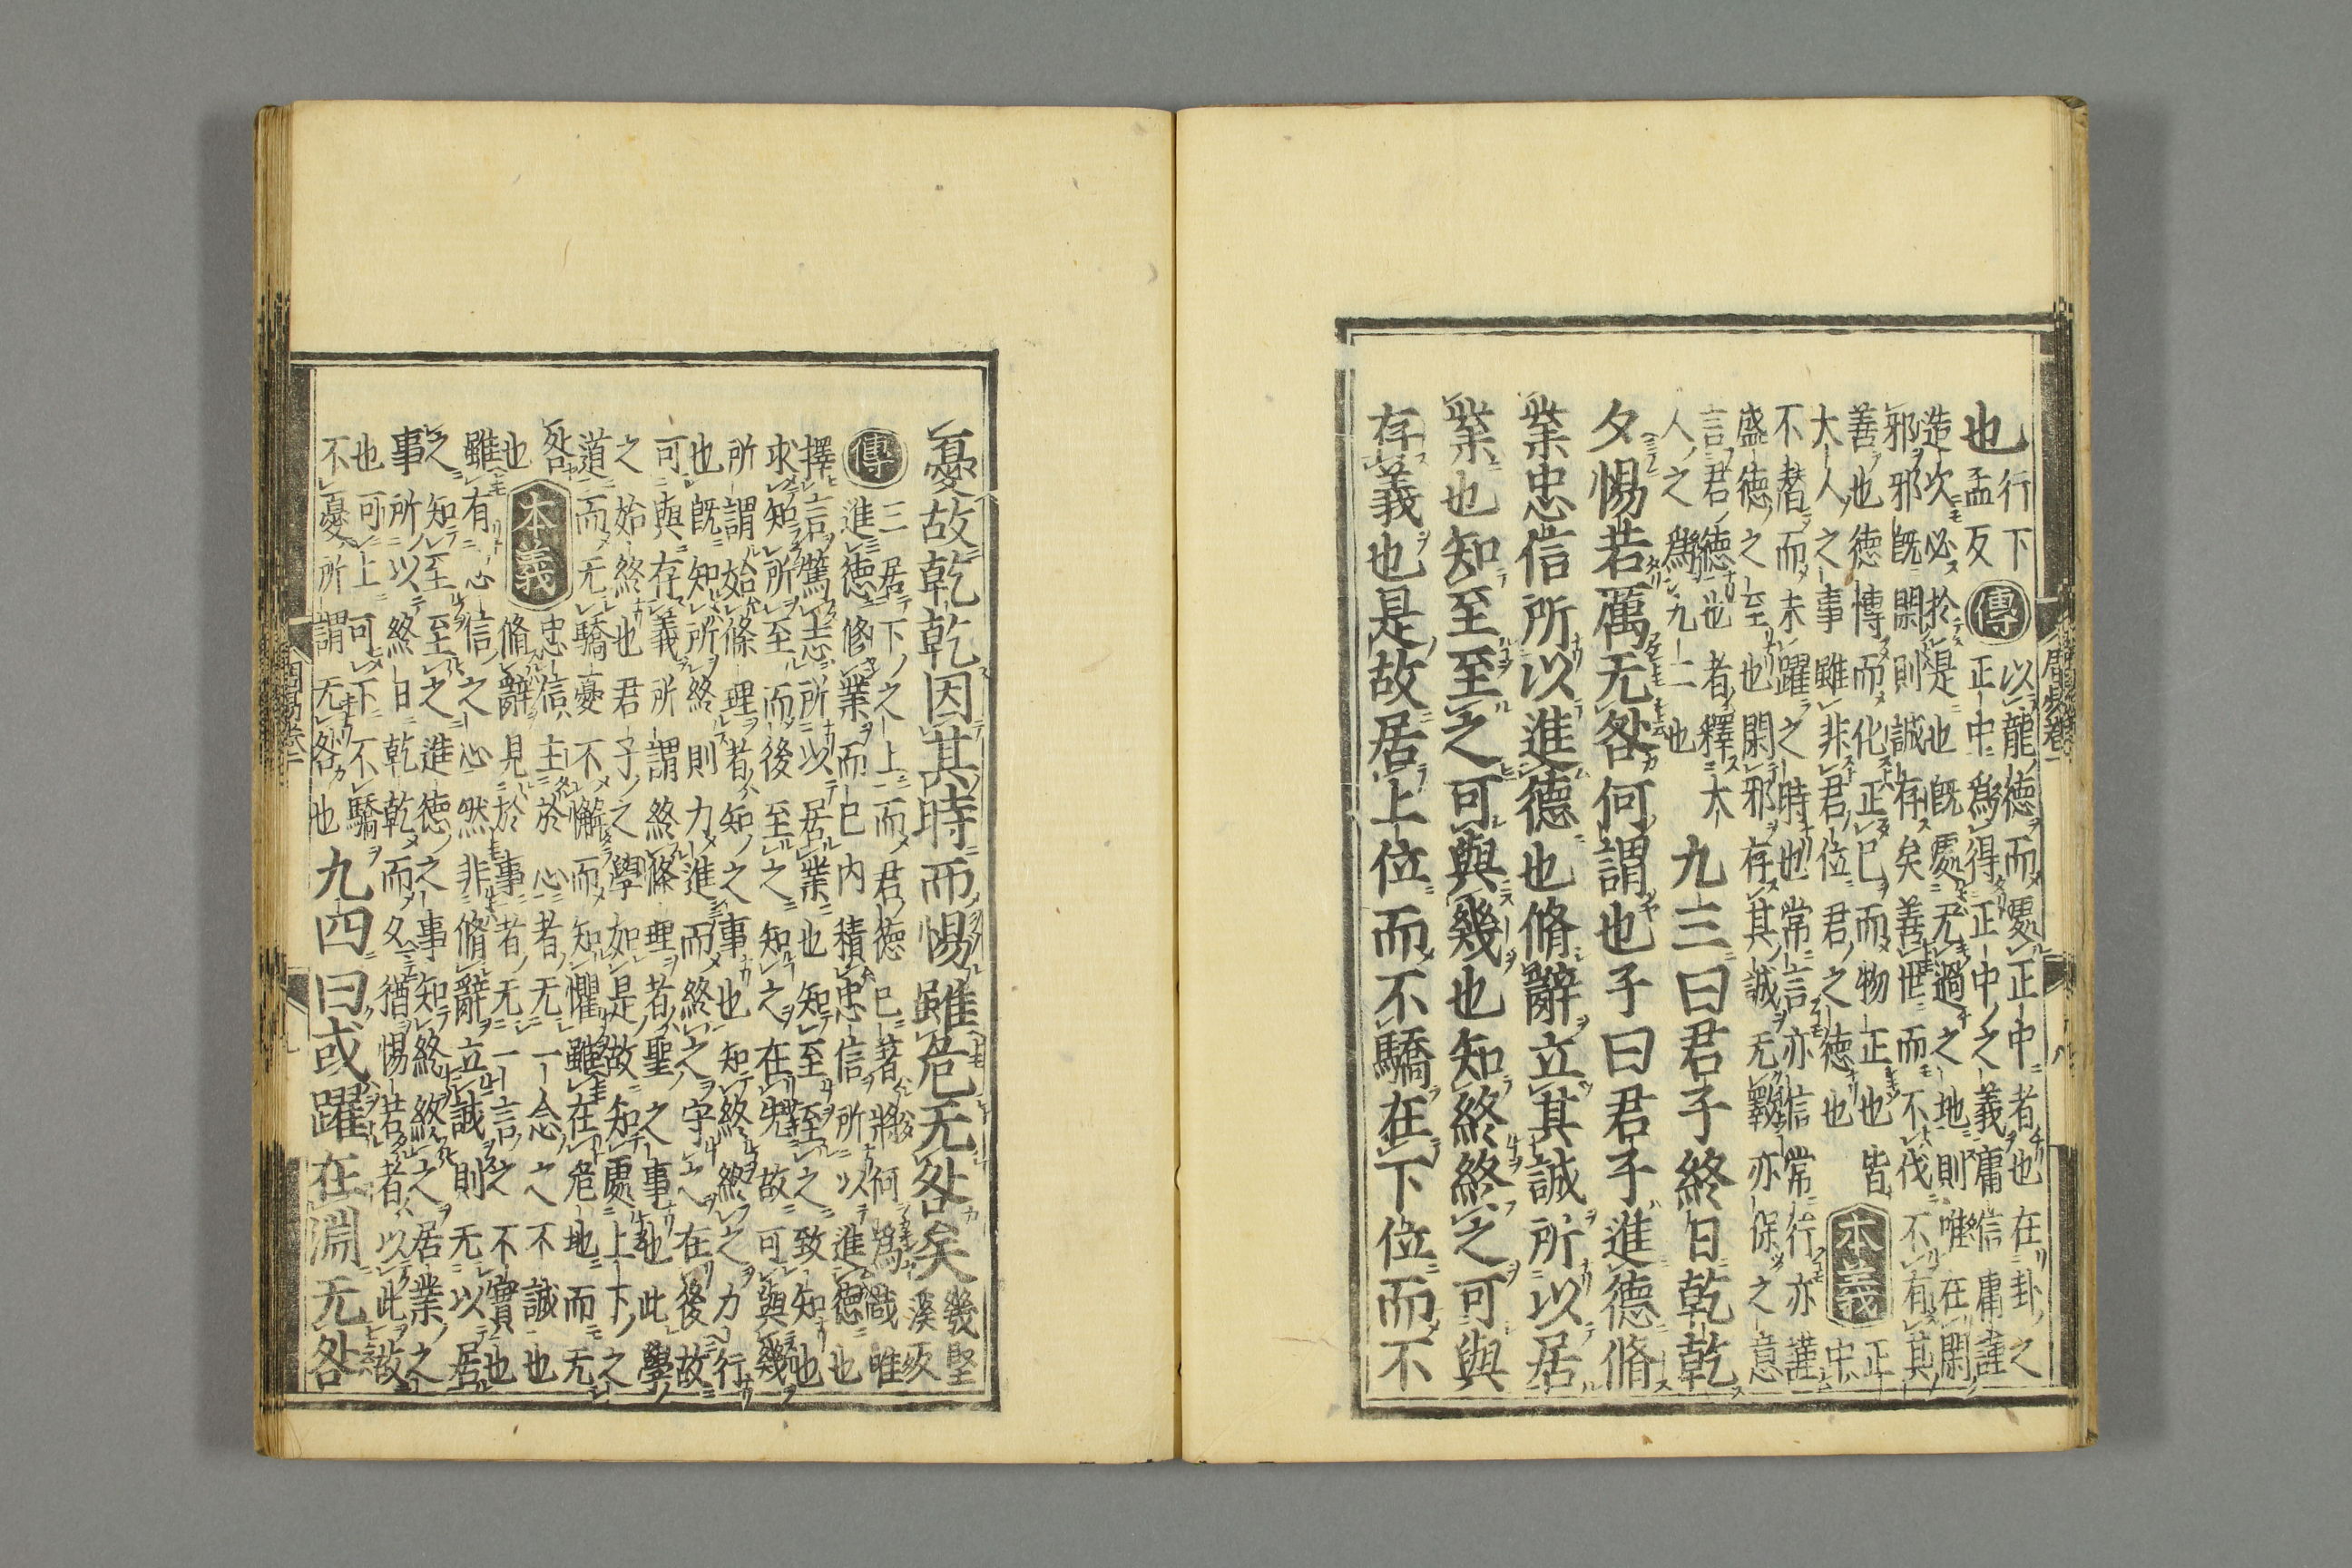 也
行下
孟反
傳
以龍德而處正中者也在卦之
正中爲得正中之義庸信庸謹
造次必於是也既處无過之地則唯在閑
邪邪既閑則誠存矣善世而不伐不有其
善也德博而化正己而物正也皆
大人之事雖非君位君之德也
本義
正
中
不潛而未躍之時也常言亦信常行亦謹
盛德之至也閑邪存其誠无斁亦保之意
言君德也者釋大
人之爲九二也
九三曰君子終日乾乾
夕惕若厲无咎何謂也子曰君子進德脩
業忠信所以進德也脩辭立其誠所以居
業也知至至之可與幾也知終終之可與
存義也是故居上位而不驕在下位而不
周易卷一
八
憂故乾乾因其時而惕雖危无咎矣
幾堅
溪反
傳
三居下之上而君德已著將何爲哉唯
進德修業而已内積忠信所以進德也
擇言篤志所以居業也知至至之致知也
求知所至而後至之知之在先故可與幾
所謂始條理者知之事也知終終之力行
也既知所終則力進而終之守之在後故
可與存義所謂終條理者聖之事也此學
之始終也君子之學如是故知處上下之
道而无驕憂不懈而知懼雖在危地而无
咎
也
本義
忠信主於心者无一念之不誠也
脩辭見於事者无一言之不實也
雖有忠信之心然非脩辭立誠則无以居
之知至至之進德之事知終終之居業之
事所以終日乾乾而夕猶惕若者以此故
也可上可下不驕
不憂所謂无咎也
九四曰或躍在淵无咎
周易卷一